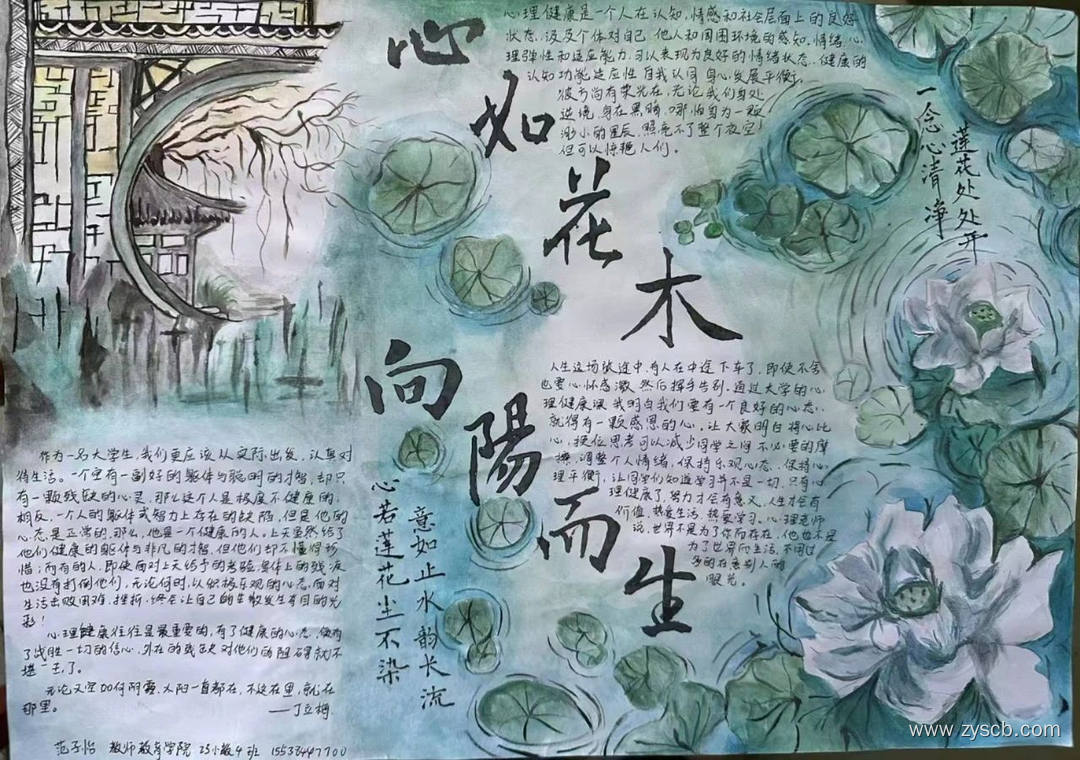 心如花木
向陽而生
心理健康是一个人在认知,情感和社会层面上的良好
状态,涉及个体对自己、他人和周围环境的感知,情绪、心
理弹性和适应能力,可以表现为良好的情绪状态、健康的
认知功能适应性,自我认同,身心发展平衡。
彼方尚有荣光在,无论我们身处
逆境,身在黑暗,哪怕身为一颗
渺小的星辰,照亮不了整个夜空!
但可以惊艳人们。
一念心清净
莲花处处开
人生这场旅途中,有人在中途下车了,即使不舍
也要心怀感激,然后挥手告别,通过大学的心
理健康课,我明白我们要有一个良好的心态,
就得有一颗感恩的心,让大家明白将心比
心,换位思考可以减少同学之间不必要的摩
擦,调整个人情绪,保持乐观心态,保持心
理平衡,让同学们知道学习并不是一切,只有心
理健康了,努力才会有意义,人生才会有
价值,热爱生活,热爱学习。心理老师
说,世界不是为了你而存在,他也不是
为了世界而生活,不用过
多的在意别人的
眼光。
作为一名大学生,我们更应该从实际出发,认真对
待生活。一个空有一副好的躯体与聪明的才智,却只
有一颗残缺的心灵,那么这个人是极度不健康的,
相反,一个人的躯体或智力上存在的缺陷,但是他的
心态是正常的,那么,他是一个健康的人。上天虽然给了
他们健康的躯体与非凡的才智,但他们却不懂得珍
惜;而有的人,即使面对上天给予的考验,身体上的残疾
也没有打倒他们,无论何时,以积极乐观的心态,面对
生活出败困难,挫折,终会让自己的生散发生夺目的光
彩!
心理健康往往是最重要的,有了健康的心态,便有
了战胜一切的信心,外在的残缺对他们的阻碍就不
堪一击了。
无论天空如何阴霾,太阳一直都在,不这在里,就在
那里。
——丁立梅
心若莲花尘不染
意如止水韵长流
范子怡 教师教育学院 23小教4班 15538447700
www.zyscb.com